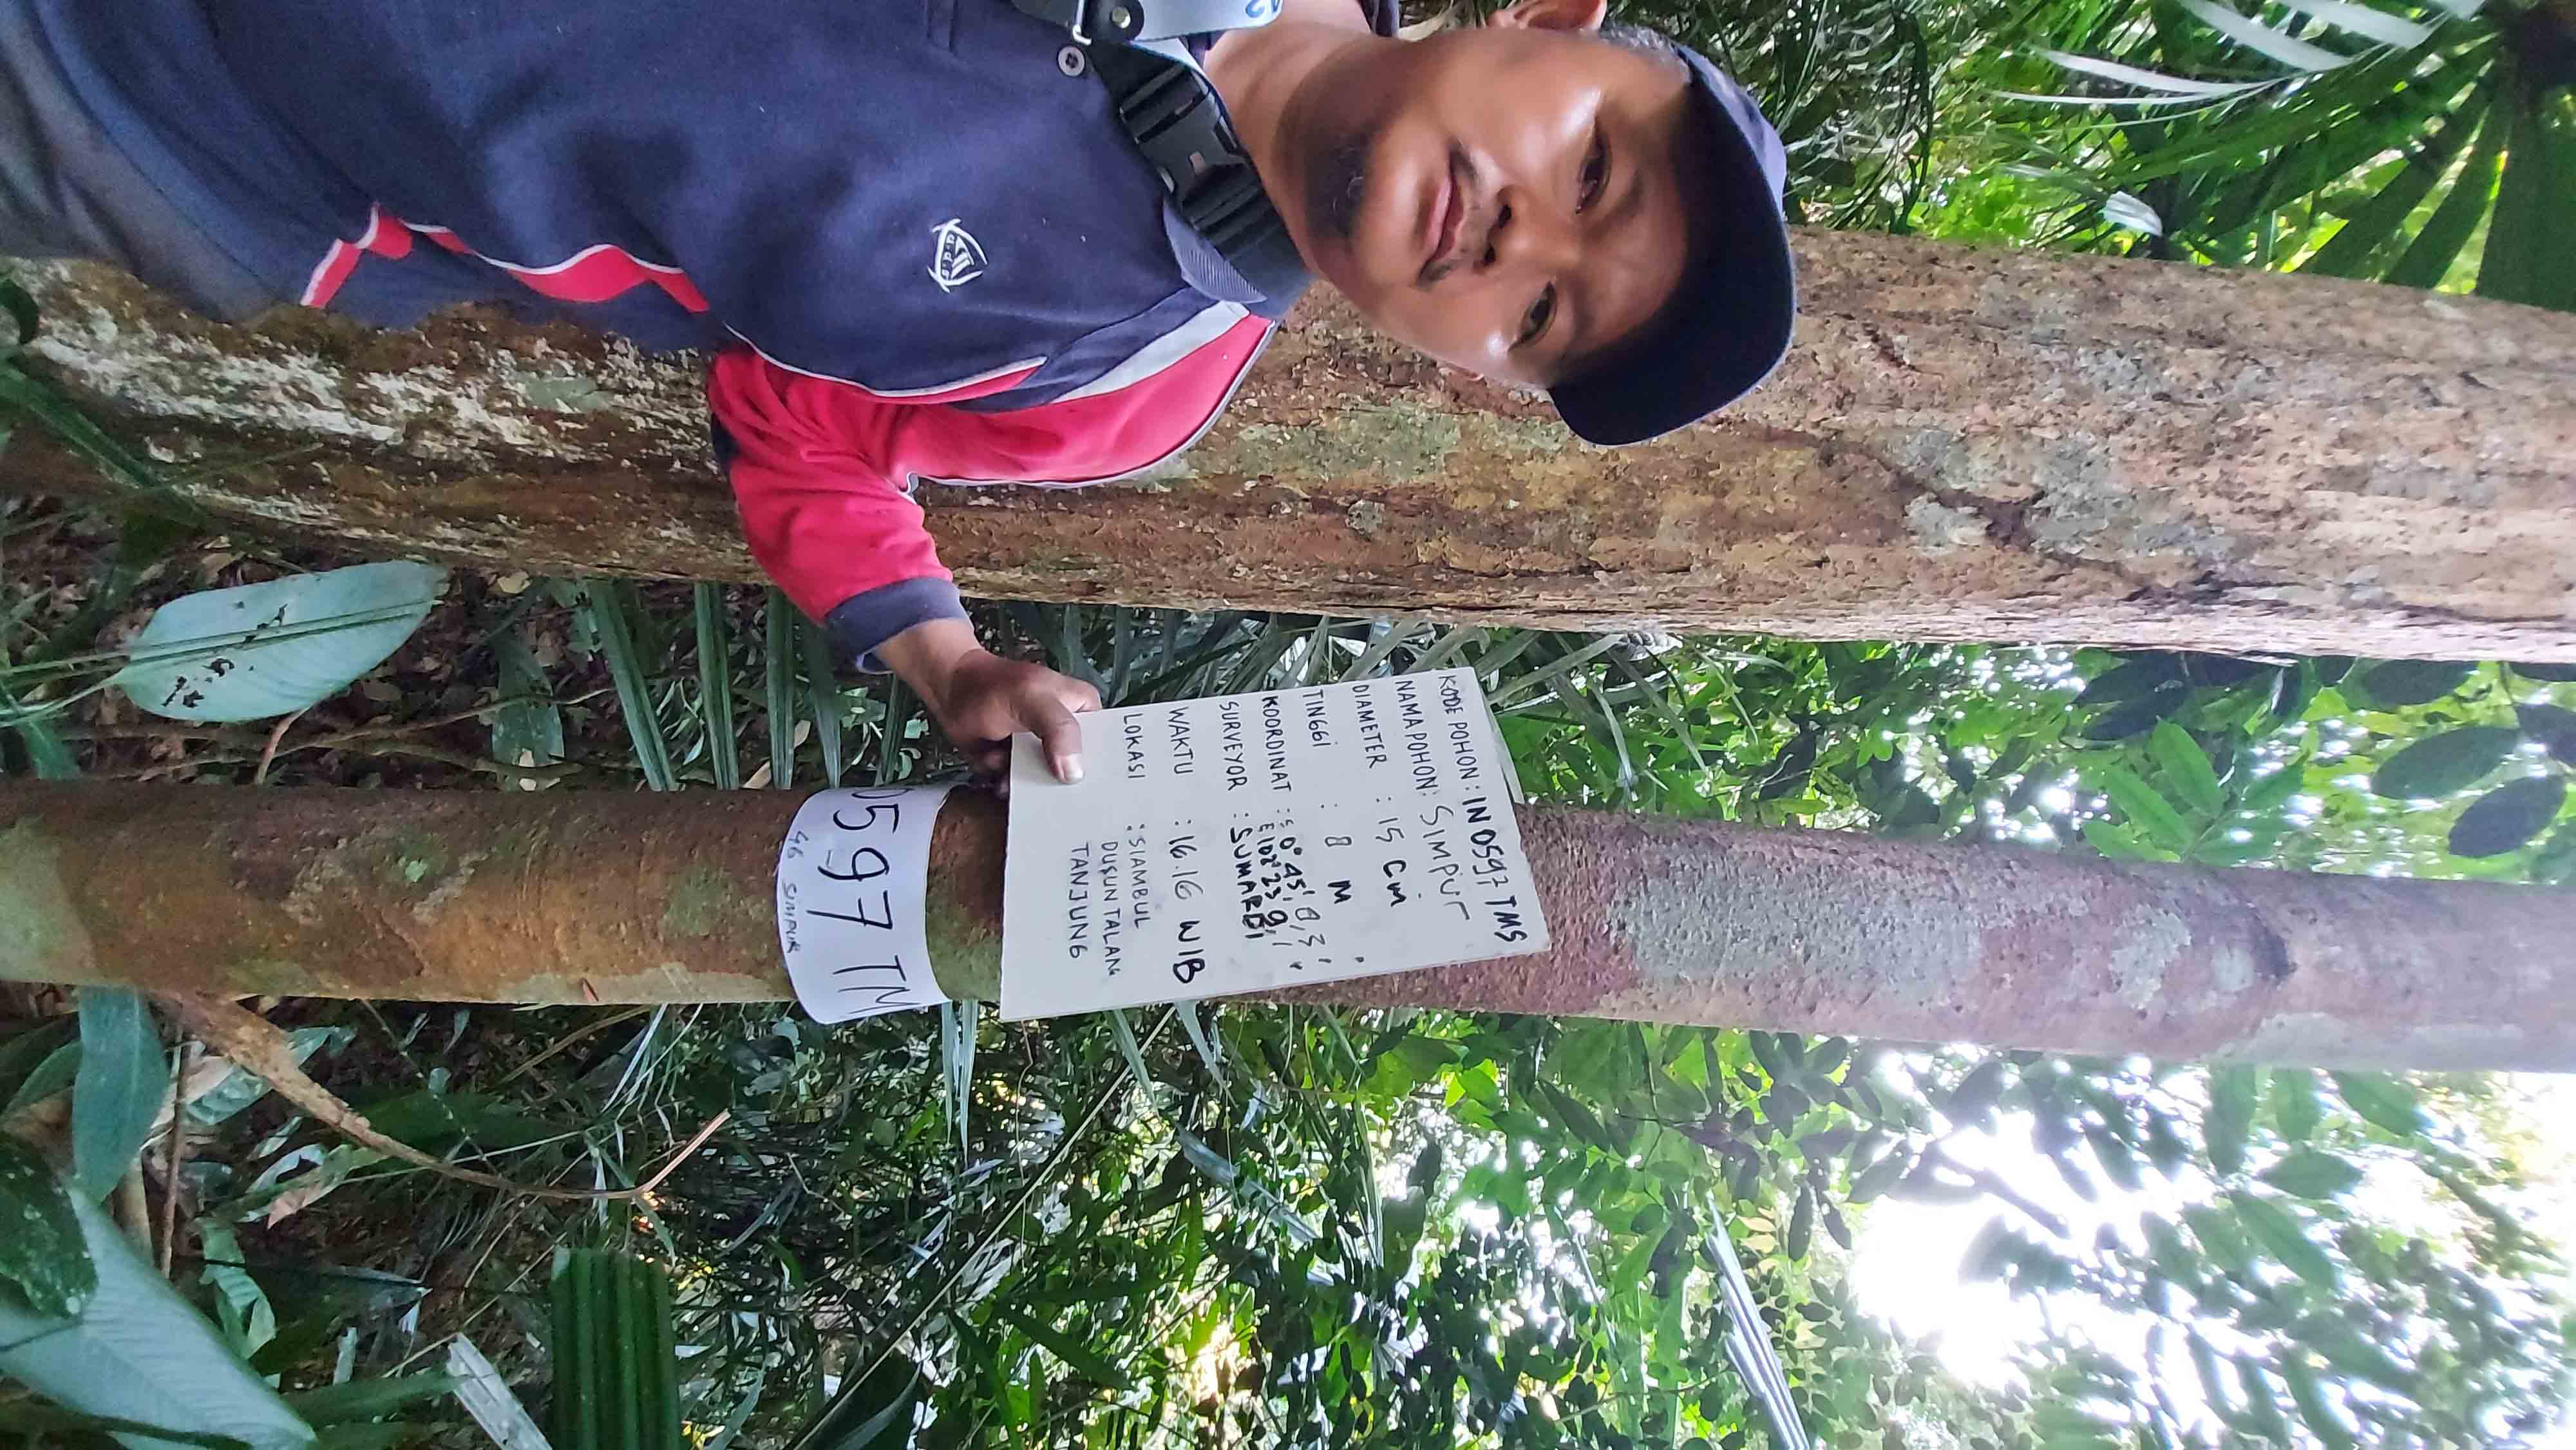 KODE POHON : IN 0597 TMS
NAMA POHON : SIMPUR
DIAMETER : 15 CM
TINGGI : 8 M
KOORDINAT : S 0° 45' 8,3"
E 102° 23' 9,1"
SURVEYOR : SUMARDI
WAKTU : 16.16 WIB
LOKASI : SIAMBUL
DUSUN TALANG
TANJUNG
0597 TM
46 SIMPUR